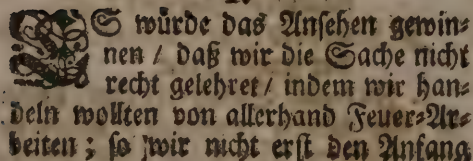 ES würde das Ansehen gewin⸗
nen / daß wir die Sache nicht
recht gelehret / indem wir han⸗
deln wollten von allerhand Feuer⸗Ar⸗
beiten ; so wir nicht erst den Anfang